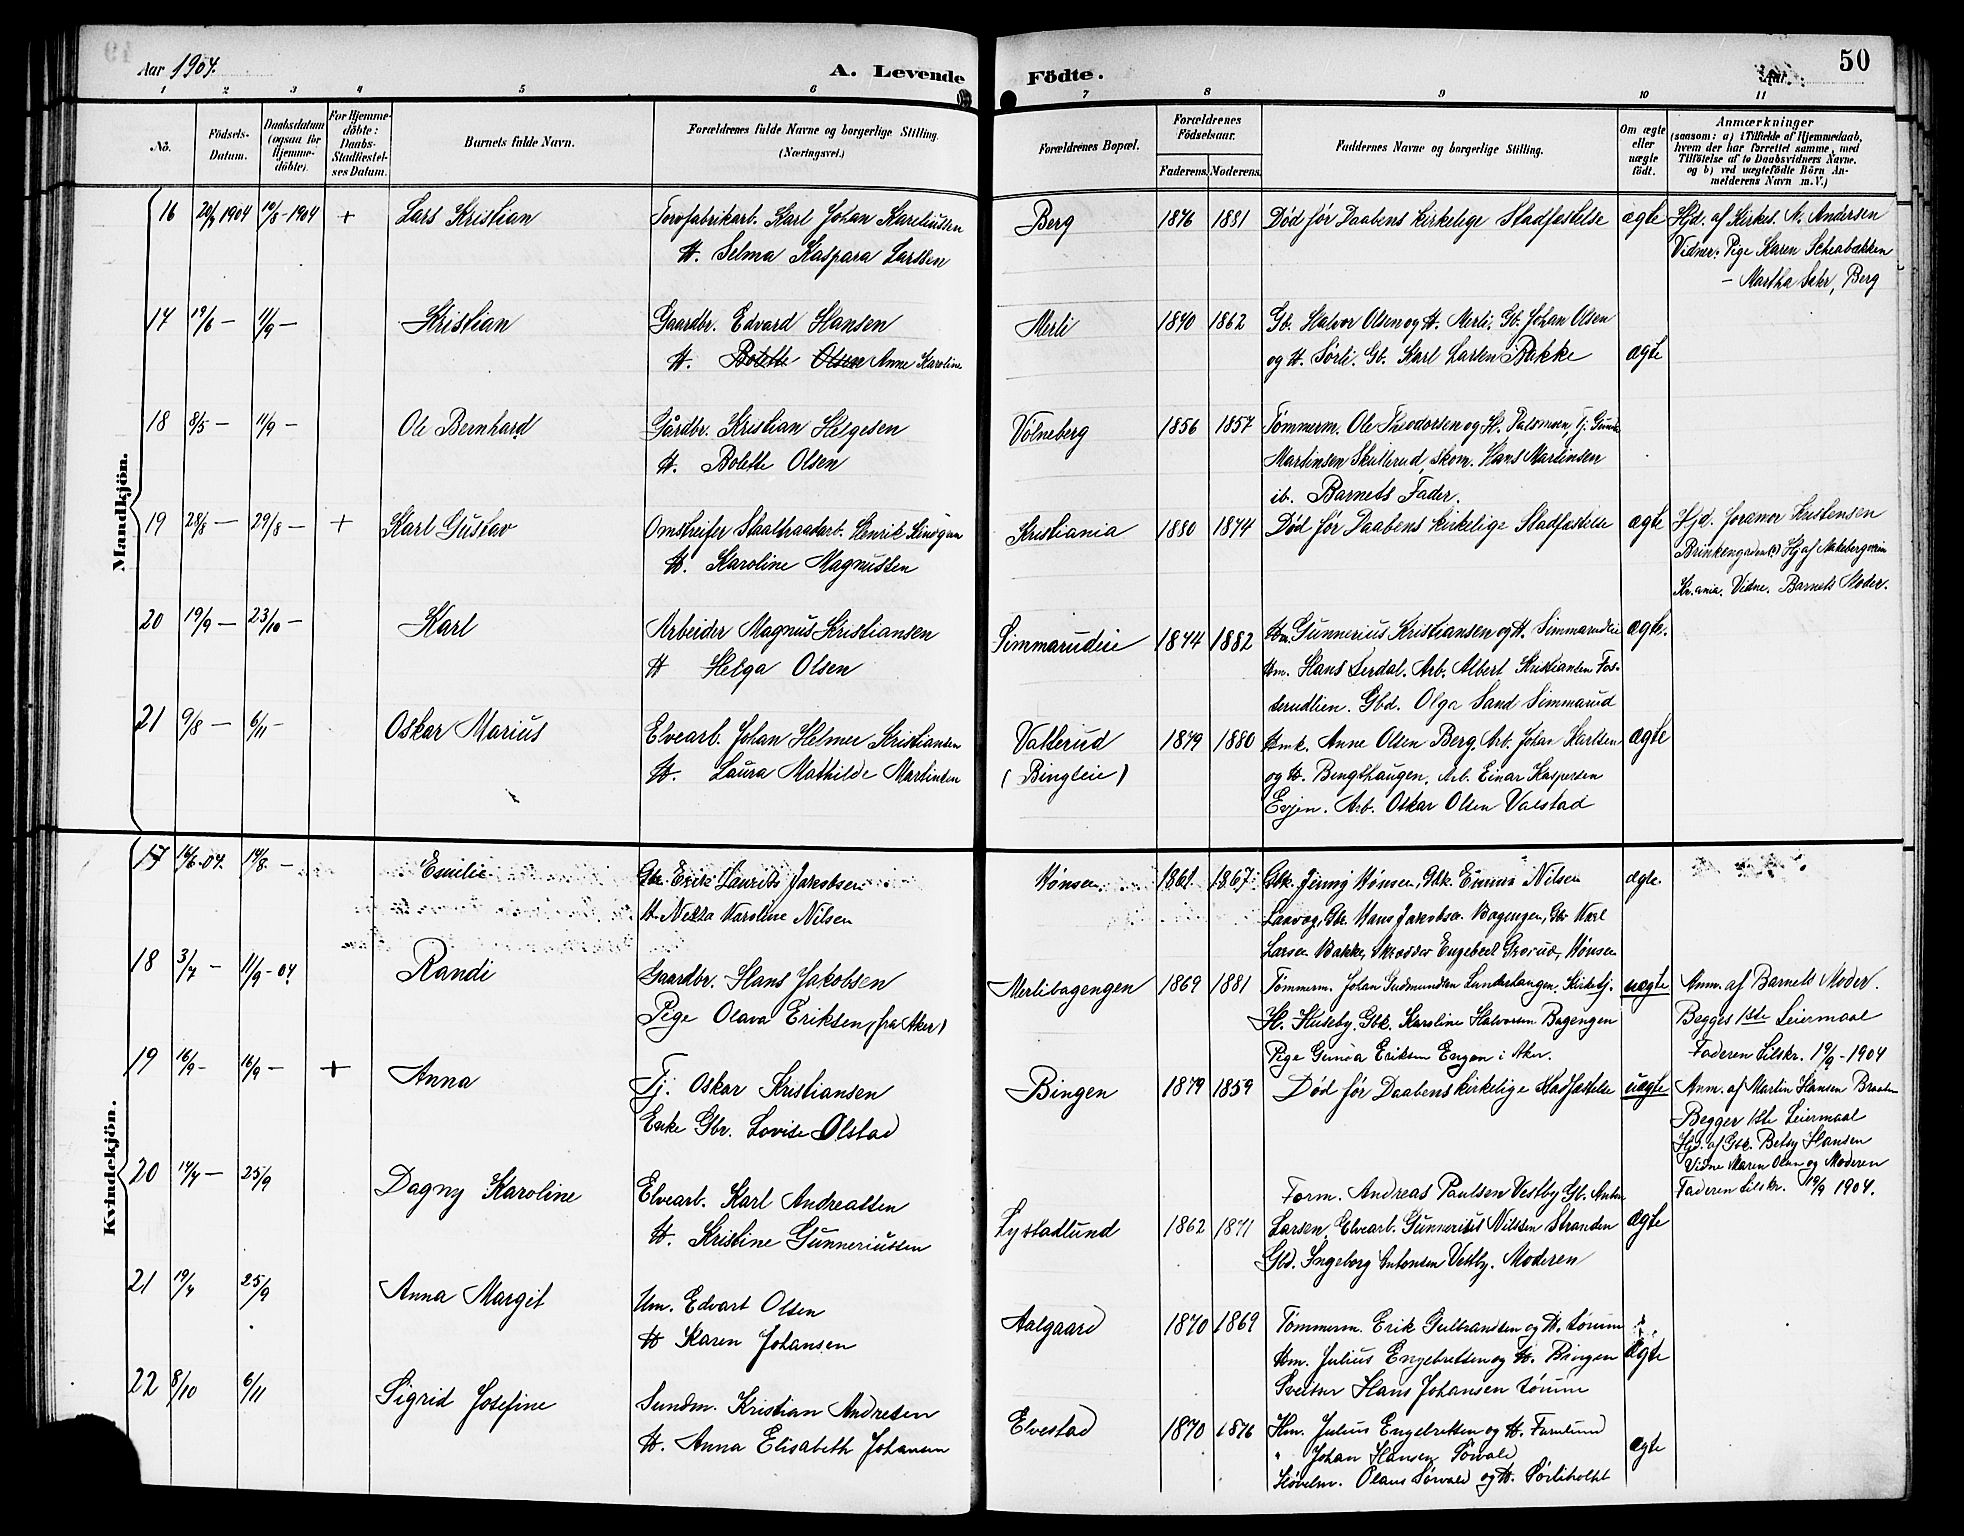 Aar 1904.
A. Levende Födte.
50
1 2 3 4 5 6 7 8 9 10 11
Nö.
Födsels-Datum.
Daabsdatum (ogsaa for Hjemme-döbte).
For Hjemme-döbte: Daabs-Stadfæstel-ses Datum.
Barnets fulde Navn.
Forældrenes fulde Navne og borgerlige Stilling. (Næringsvei.)
Forældrenes Bopæl.
Forældrenes Födselsaar.
Faderens. Moderens.
Faddernes Navne og borgerlige Stilling.
Om ægte eller uægte födt.
Anmærkninger
(saasom: a) i Tilfælde af Hjemmedaab,
hvem der har forrettet samme, med
Tilföielse af to Daabsvidners Navne.
og b) ved uægtefödte Börn An-
melderens Navn m. V.)
Mandkjön.
16 20/7 1904 10/8-1904 + Lars Kristian Karl Johan Kareliussen Berg 1876 1881 Död før Daabens kirkelige Stadfæstelse ægte Hjd. af Kirkes. A. Andersen
H. Selma Kaspara Larssen Vidner: Pige Karen
- Martha Sæhr, Berg
17 19/6 - 11/9 - Kristian Gaardbr. Edvard Hansen Merli 1870 1862 Gb. Halvor Olsen og H. Merli. Gb. Johan Olsen
H. Bolette Olsen Anne Karoline og H. Sörli. Gb. Karl Larsen Bakke ægte
18 8/5 - 11/9 - Ole Bernhard Gårdbr. Kristian Helgesen Volneberg 1856 1857 Tömmerm. Ole Theodorsen og H.
H. Bolette Olsen Martinsen Skullerud, skom. Hans Martinsen
ib. Barnets Fader.
19 28/8 - 29/8 - + Karl Gustav Omstreifer Staaltraadarb. Henrik Kristiania 1880 1874 Död før Daabens kirkelige Stadfæstelse ægte Hjd. Joramor Kristensen
H. Karoline Magnussen
Kr.ania. Vidne. Barnets Moder.
20 19/9 - 23/10 - Karl Arbeider Magnus Kristiansen Simmarudeie 1874 1882 Hm. Gunnerius Kristiansen og H. Simmarudeie ægte.
H Helga Olsen Hm. Hans Lerdal. Arb. Albert Kristiansen Fos-
serudlien. Gbd. Olga Sand Simmarud
21 9/8 - 6/11 - Oskar Marius Elvearb. Johan Helmer Kristiansen Valterud 1879 1880 Hmk. Anne Olsen Berg. Arb. Johan Karlsen ægte
H. Laura Mathilde Martinsen (Bingseie) og H. Bingshaugen. Arb. Einar Kaspersen
Evjen. Arb. Oskar Olsen Valstad
Kvindekjön.
17 16/6-04. 14/8 - Emilie Gbr. Erik Laurits Jakobsen Hönsen 1861 1867 Gbk. Jenny Hönsen, Gbk. Emma Nilsen ægte.
H. Karoline Nilsen Gbr. Hans Jakobsen Bagengen, Gbr. Karl
Larsen Bakke, Skrædder Engebret Grorud, Hönsen
18 3/7 - 11/9-04 Randi Gaardbr. Hans Jakobsen Merlibagengen 1869 1881 Tömmerm. Johan Gudmundsen Kirketj. uægte Anm. af Barnets Moder.
Pige Olava Eriksen (fra Aker) H. Huseby. Gbk. Karoline Halvorsen Bagengen Begges 1ste Leiermaal
Pige Gunda Eriksen Engen i Aker. Faderen tilskr. 19/9-1904
19 16/9- 16/9 - + Anna Tj. Oskar Kristiansen Bingen 1879 1859 Död før Daabens kirkelige Stadfæstelse uægte Anm. af Martin Hansen Braaten
Enke Gbr. Lovise Olstad Begges 1ste Leiermaal
Hjd. af Gbk. Betsy Hansen
Vidne Maren Olsen og Moderen
Faderen tilskr. 19/9 1904.
20 14/7 - 25/9 Dagny Karoline Elvearb. Karl Andreassen Form. Andreas Paulsen Vestby Gb. Anton
H. Kristine Gunneriussen Lystadlund 1862 1871 Larsen, Elvearb. Gunnerius Nilssen Stranden ægte
Gbd. Ingeborg Antonsen Vestby. Moderen
21 19/7 25/9 Anna Margit Hm. Edvart Olsen Aalgaard 1870 1869 Tömmerm. Erik Gulbrandsen og H. Sörum
H Karen Johansen Hm. Julius Engebretsen og H. Bingen ægte
Sveitser Hans Johansen Sörum
22 8/10 6/11 Sigrid Josefine Sundm. Kristian Andresen Elvestad 1870 1876 Hm. Julius Engebretsen og H. Famlund
H. Anna Elisabeth Johansen " Johan Hansen Sörvald ægte
Olaus Sörvald og H. Sörliholtet